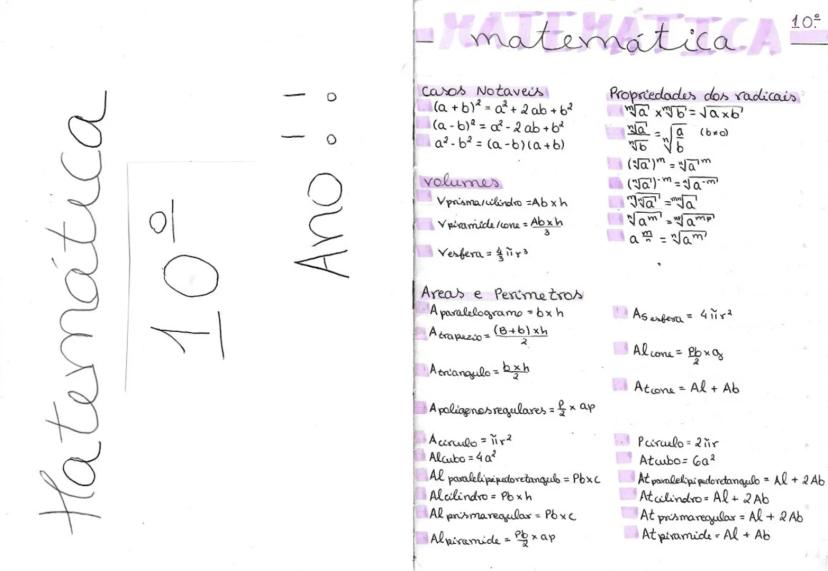 Matemática
10º
Ano!!
MATEMÁTICA
matemática
10º
Casos Notaveis
(a + b)² = a² + 2ab + b²
(a - b)² = a² - 2ab + b²
a² - b² = (a - b)(a + b)
volumes
V prisma/cilindro = Ab x h
V piramide/cone = Ab x h / 3
V esfera = 4/3 π r³
Propriedades dos radicais
ⁿ√a x ⁿ√b = √a x b
ⁿ√a / ⁿ√b = ⁿ√(a/b) (b≠0)
(ⁿ√a)ᵐ = ⁿ√aᵐ
(ⁿ√a)⁻ᵐ = ⁿ√a⁻ᵐ
ᵐ√ⁿ√a = ᵐⁿ√a
a^(m/n) = ⁿ√aᵐ
Areas e Perimetros
A paralelogramo = b x h
A trapezio = (B + b) x h / 2
A triangulo = b x h / 2
A poligenos regulares = P/2 x ap
A circulo = π r²
Al cubo = 4a²
Al paralelipipedoretangulo = Pb x c
Al cilindro = Pb x h
Al prisma regular = Pb x c
Al piramide = Pb/2 x ap
As esfera = 4 π r²
Al cone = Pb/2 x g
At cone = Al + Ab
P circulo = 2 π r
At cubo = 6a²
At paralelipipedoretangulo = Al + 2Ab
At cilindro = Al + 2Ab
At prisma regular = Al + 2Ab
At piramide = Al + Ab